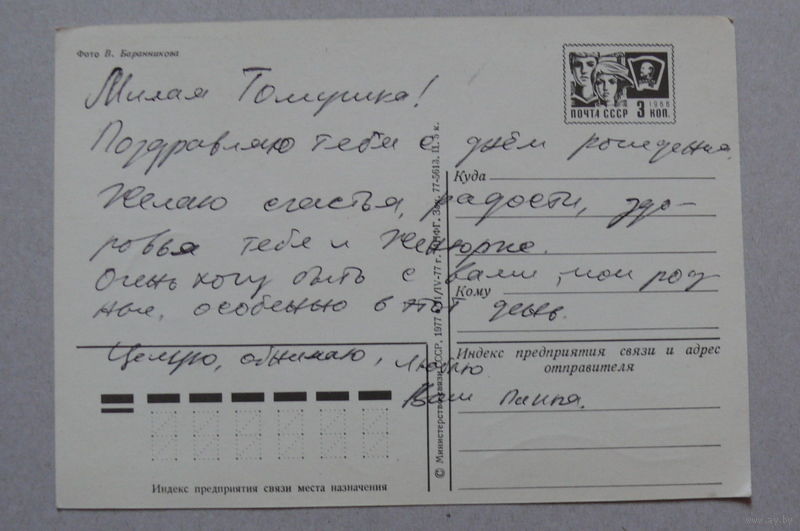 Фото В. Баранникова
ПОЧТА СССР 3 КОП.
1966
Милая Томушка!
Поздравляю тебя с днём рождения.
Куда
Желаю счастья, радости, здо-
ровья тебе и Женюрке.
Очень хочу быть с вами, мои род
Кому
ные, особенно в этот день.
Целую, обнимаю, люблю
Ваш папка.
Индекс предприятия связи и адрес
отправителя
Индекс предприятия связи места назначения
© Министерство связи СССР, 1977 /IV-77 г. Зак. 77-5613. Ц. 5 к.
www.ay.by